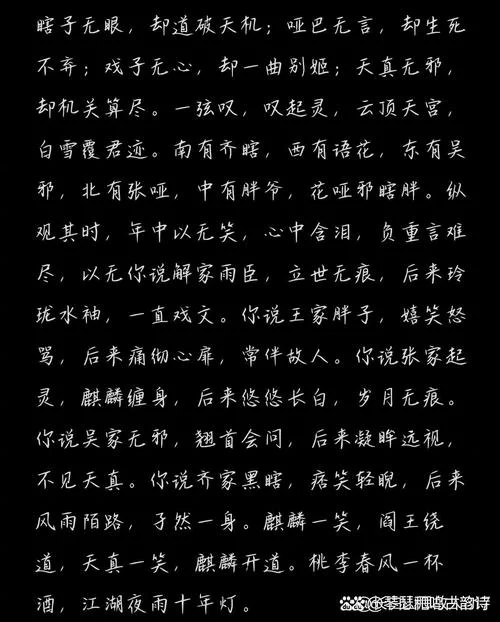 瞎子无眼，却道破天机；哑巴无言，却生死
不弃；戏子无心，却一曲别姬；天真无邪，
却机关算尽。一弦叹，叹起灵，云顶天宫，
白雪覆君迹。南有齐瞎，西有语花，东有吴
邪，北有张哑，中有胖爷，花哑邪瞎胖。纵
观其时，年中以无笑，心中含泪，负重言难
尽，以无你说解家雨臣，立世无痕，后来玲
珑水袖，一直戏文。你说王家胖子，嬉笑怒
骂，后来痛彻心扉，常伴故人。你说张家起
灵，麒麟缠身，后来悠悠长白，岁月无痕。
你说吴家无邪，翘首会问，后来凝眸远视，
不见天真。你说齐家黑瞎，痞笑轻睨，后来
风雨陌路，孑然一身。麒麟一笑，阎王绕
道，天真一笑，麒麟开道。桃李春风一杯
酒，江湖夜雨十年灯。